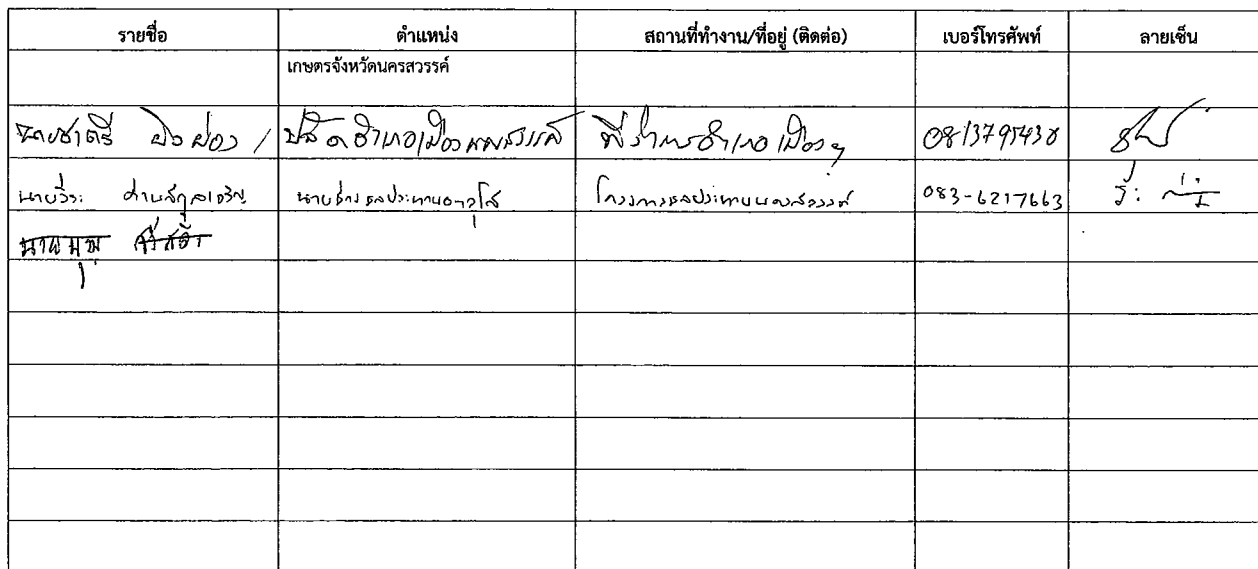 รายชื่อ ตำแหน่ง สถานที่ทำงาน/ที่อยู่ (ติดต่อ) เบอร์โทรศัพท์ ลายเซ็น
เกษตรจังหวัดนครสวรรค์
นายชาตรี ปลัดอำเภอเมืองนครสวรรค์ ที่ว่าการอำเภอเมืองฯ 0813795438
นายวีระ ด่านสกุลเจริญ นายช่างชลประทานอาวุโส โครงการชลประทานนครสวรรค์ 083-6217663